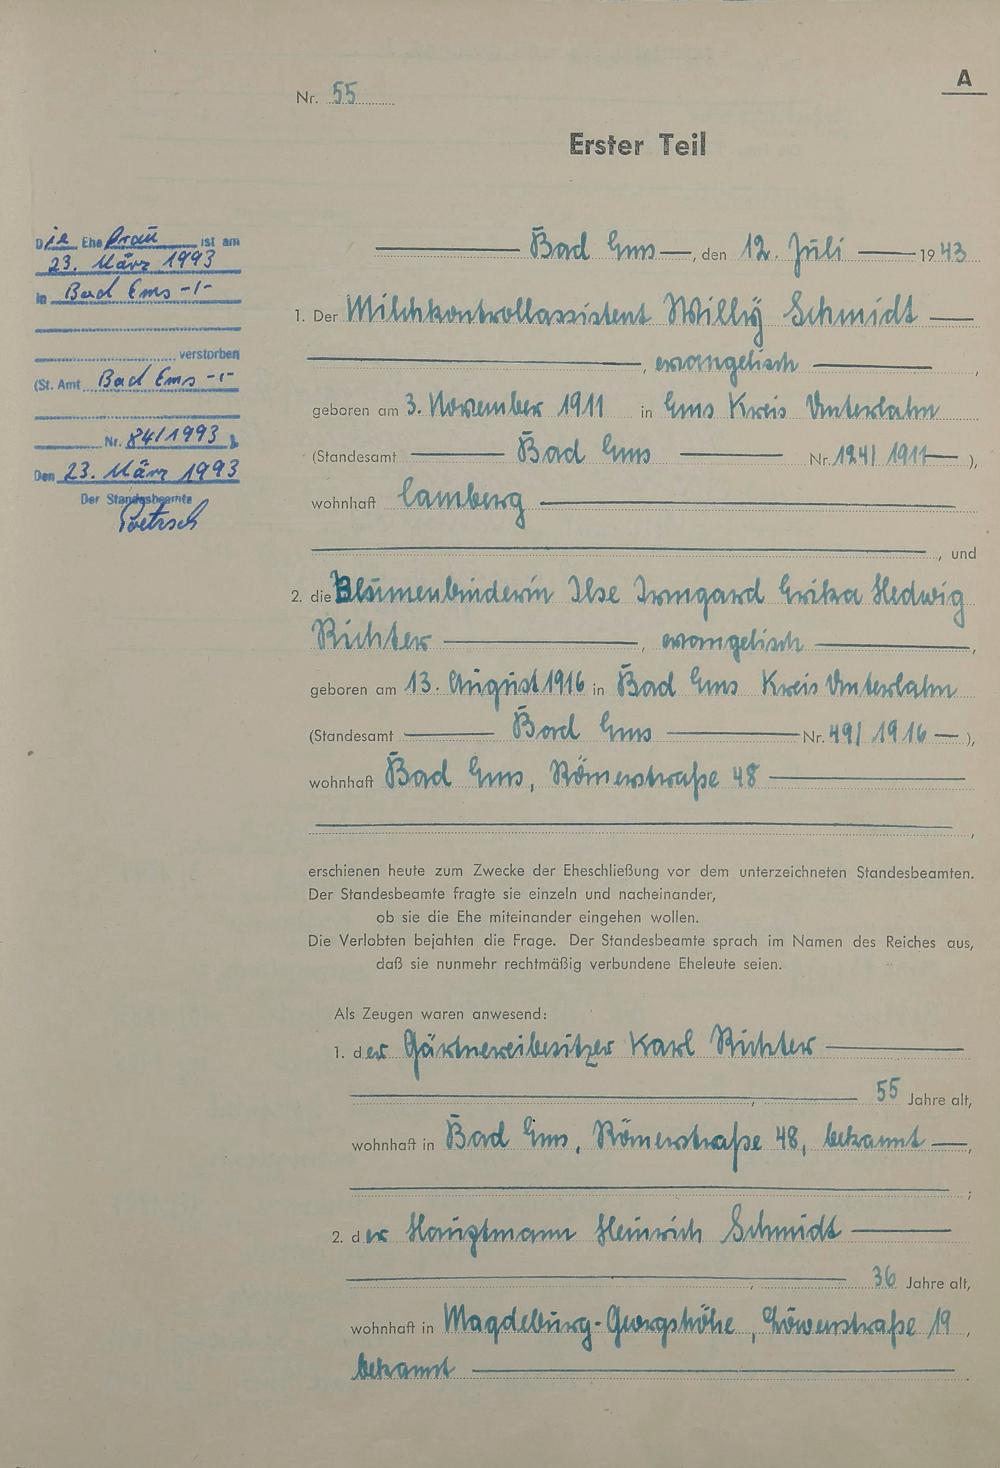 A
Nr. 55
Erster Teil
Die Ehefrau ist am
23. März 1993
in Bad Ems -/-
verstorben
(St. Amt Bad Ems -/-
Nr. 84/1993 ).
Den 23. März 1993
Der Standesbeamte
Bad Ems, den 12. Juli 1943
1. Der Milchkontrollassistent Willy Schmidt
, evangelisch ,
geboren am 3. November 1911 in Ems Kreis Unterlahn
(Standesamt Bad Ems Nr. 124/1911 ),
wohnhaft Camberg
, und
2. die Blumenbinderin Ilse Irmgard Erika Hedwig
Richter , evangelisch ,
geboren am 13. August 1916 in Bad Ems Kreis Unterlahn
(Standesamt Bad Ems Nr. 49/1916 ),
wohnhaft Bad Ems, Römerstraße 48
,
erschienen heute zum Zwecke der Eheschließung vor dem unterzeichneten Standesbeamten.
Der Standesbeamte fragte sie einzeln und nacheinander,
ob sie die Ehe miteinander eingehen wollen.
Die Verlobten bejahten die Frage. Der Standesbeamte sprach im Namen des Reiches aus,
daß sie nunmehr rechtmäßig verbundene Eheleute seien.
Als Zeugen waren anwesend:
1. der Gärtnereibesitzer Karl Richter
, 55 Jahre alt,
wohnhaft in Bad Ems, Römerstraße 48, bekannt ,
;
2. der Hauptmann Heinrich Schmidt
, 36 Jahre alt,
wohnhaft in Magdeburg-Georgshöhe, Löwenstraße 19,
bekannt .